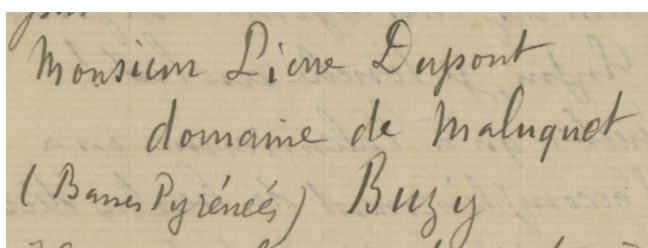 Monsieur Pierre Dupont
domaine de Maluquet
(Basses Pyrénées) Buzy